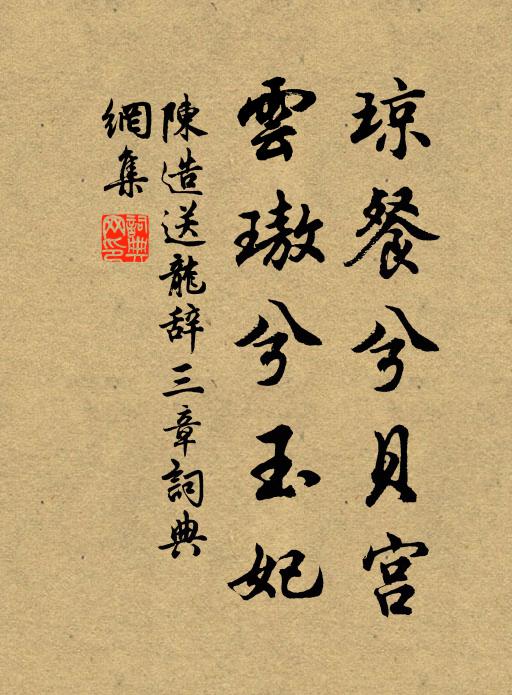 琼餐兮贝宫
雲璈兮玉妃
陳造送龍辞三章詞典
網集
詞典网印